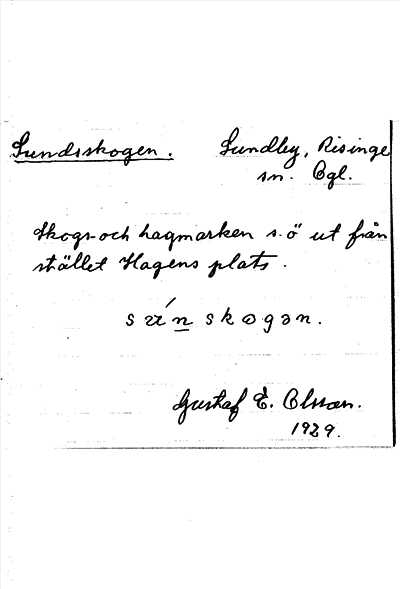 Sundsskogen. Sundby, Risinge
sn. Ögl.
Skogs- och hagmarken s.ö ut från
stället Hagens plats.
Gustaf E. Olsson.
1929.